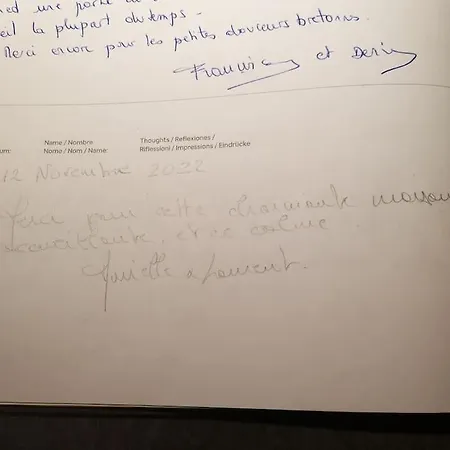 une
eil la plupart du temps.
Merci encore pour les petites douceurs bretonnes.
et
Name / Nombre
Nome / Nom / Name:
Thoughts / Reflexiones /
Riflessioni / Impressions / Eindrücke
um:
12 Novembre 2022
Merci pour cette charmante maison
accueillante, et ce calme.
Laurent.